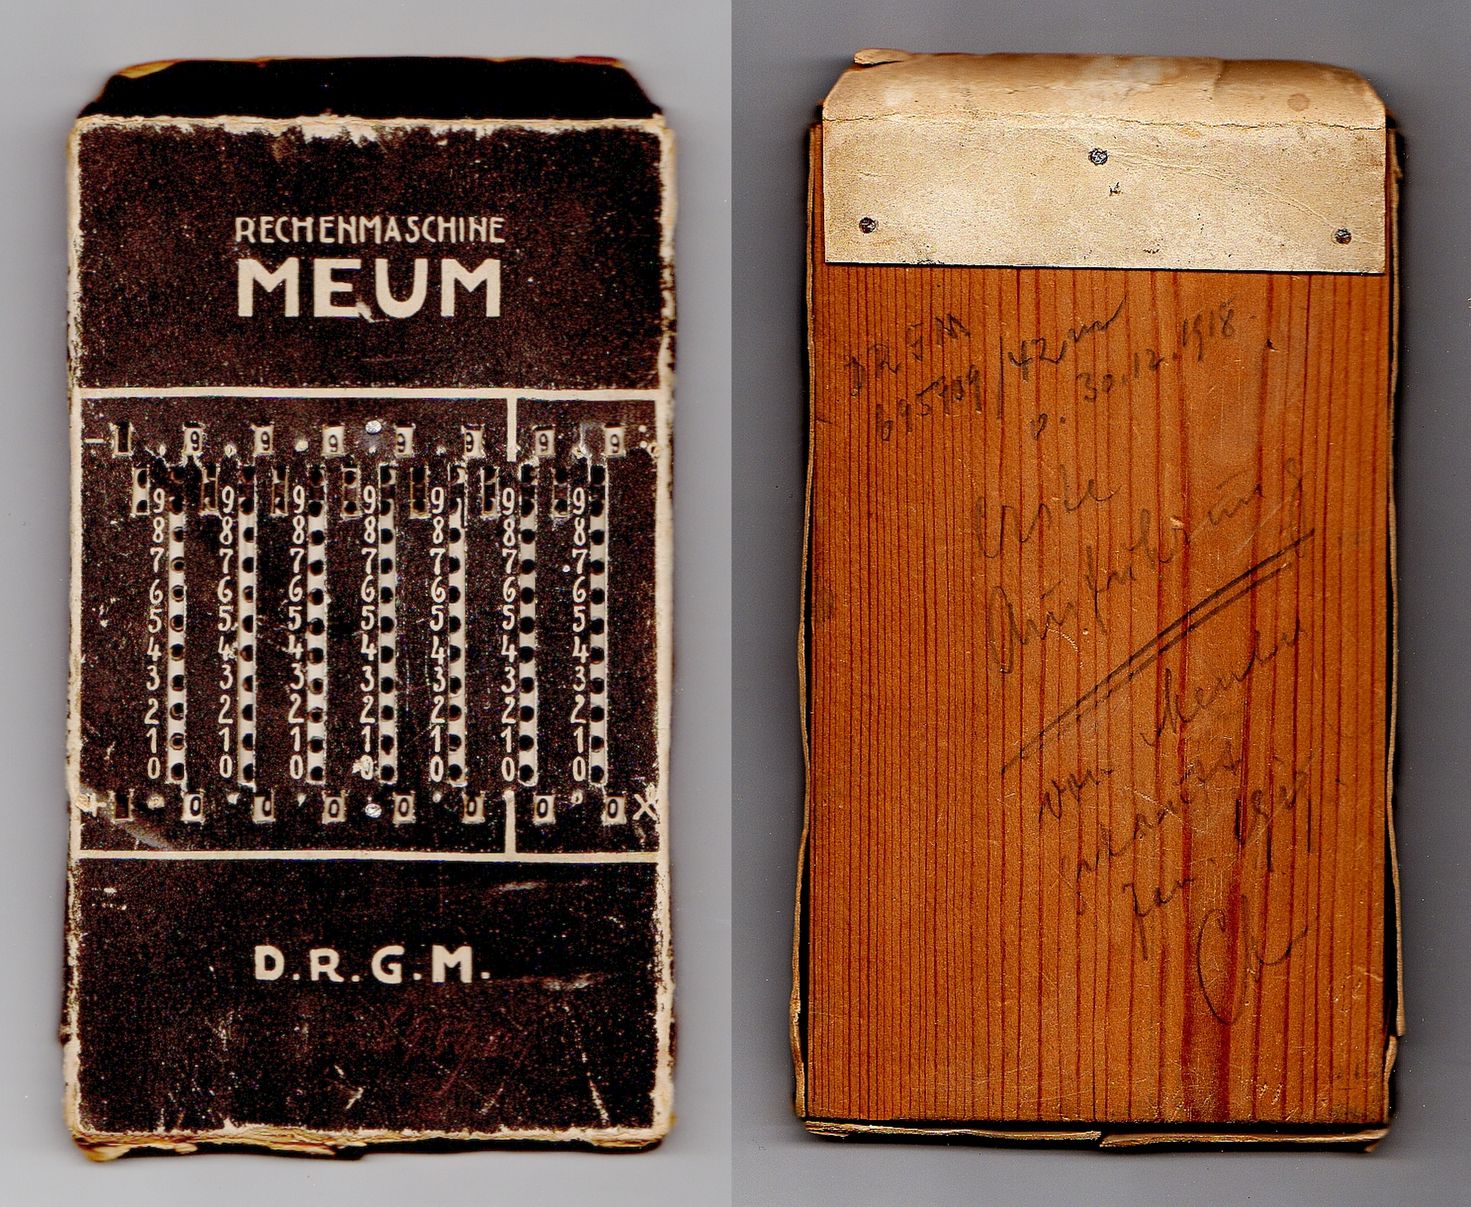 RECHENMASCHINE
MEUM
- 9 9 9 9 9 9 9
9 9 9 9 9 9 9
8 8 8 8 8 8 8
7 7 7 7 7 7 7
6 6 6 6 6 6 6
5 5 5 5 5 5 5
4 4 4 4 4 4 4
3 3 3 3 3 3 3
2 2 2 2 2 2 2
1 1 1 1 1 1 1
0 0 0 0 0 0 0
+ 0 0 0 0 0 0 0 X
D.R.G.M.
DRGM
695709/42m
v. 30.12.1918
Erste
Ausführung
von
Jan.